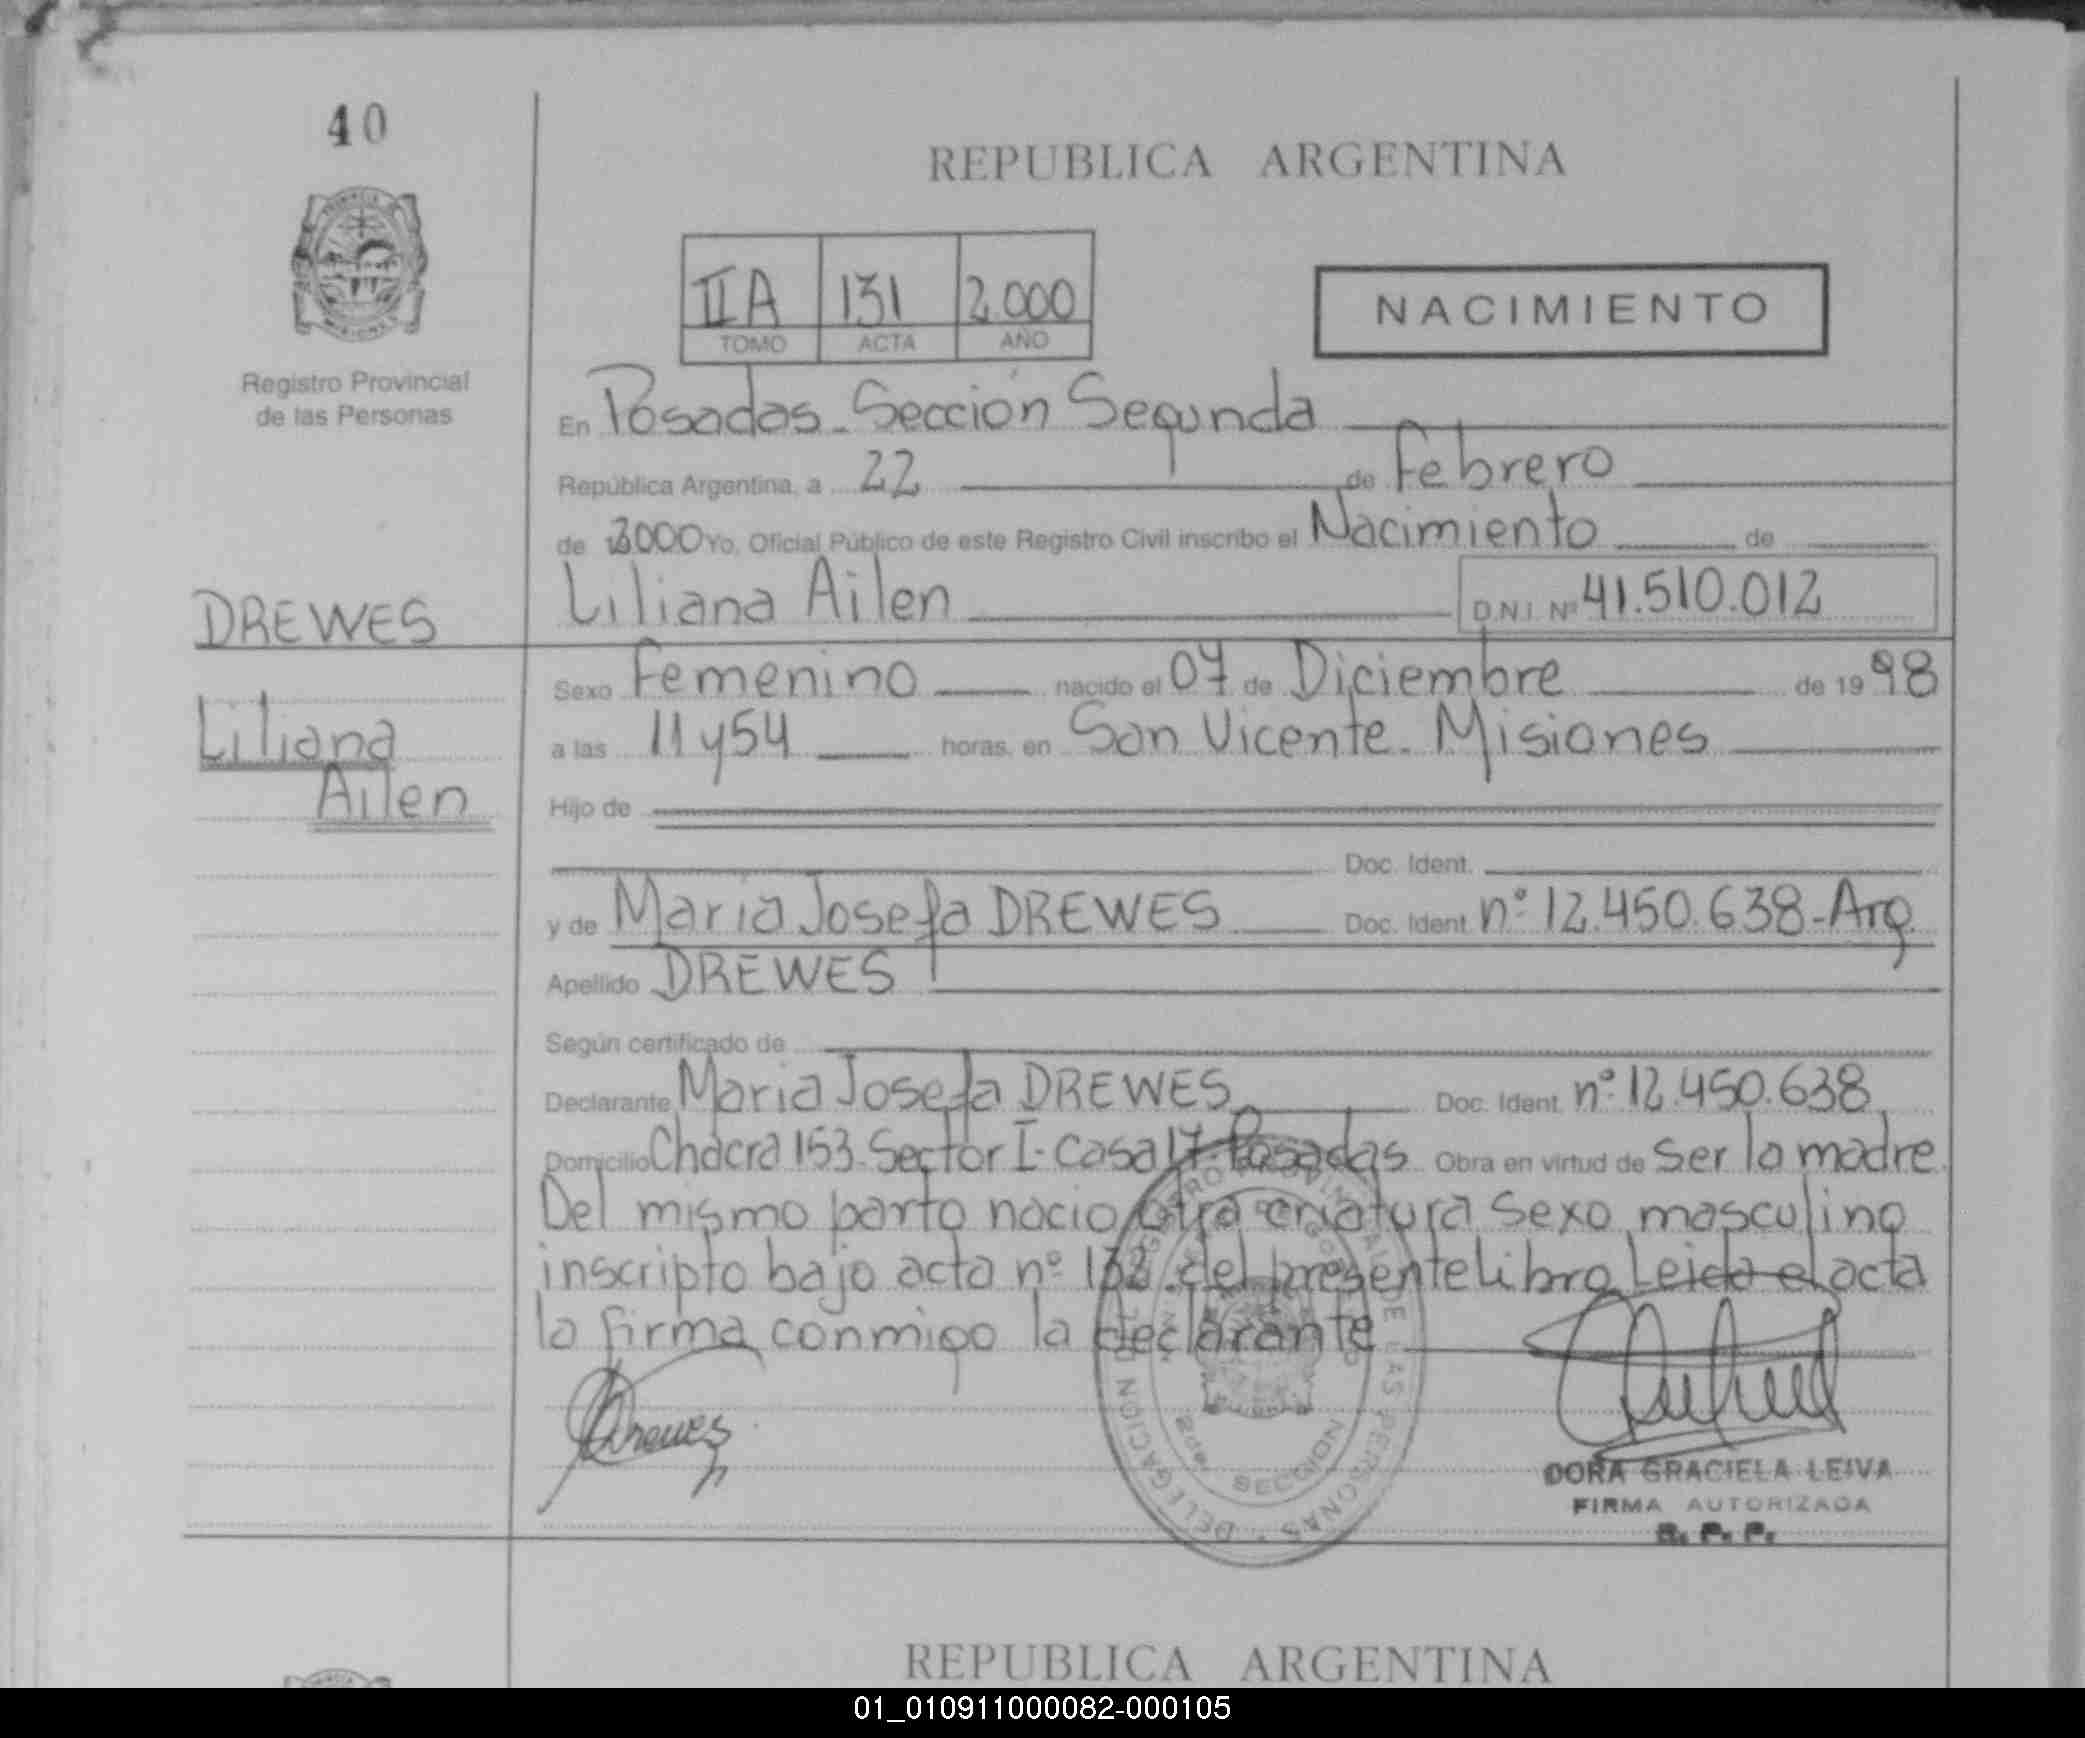 40
REPUBLICA ARGENTINA
IIA 131 2.000
TOMO ACTA AÑO
NACIMIENTO
Registro Provincial
de las Personas
En Posadas - Sección Segunda
República Argentina, a 22 de Febrero
de 2000 Yo, Oficial Público de este Registro Civil inscribo el Nacimiento de
DREWES
Liliana Ailen
Liliana Ailen D.N.I. Nº 41.510.012
Sexo Femenino nacido el 07 de Diciembre de 1998
a las 11 y 54 horas, en San Vicente - Misiones
Hijo de
Doc. Ident.
y de Maria Josefa DREWES Doc. Ident. nº 12.450.638 - Arg.
Apellido DREWES
Según certificado de
Declarante Maria Josefa DREWES Doc. Ident. nº 12.450.638
Domicilio Chacra 153. Sector I - Casa 17 - Posadas Obra en virtud de ser la madre.
Del mismo parto nacio otra criatura sexo masculino
inscripto bajo acta nº 132 del presente libro. Leida el acta
la firma conmigo la declarante
Drewes
REGISTRO PROVINCIAL DE LAS PERSONAS · DELEGACION
2da SECCION
DORA GRACIELA LEIVA
FIRMA AUTORIZADA
R. P. P.
REPUBLICA ARGENTINA
01_010911000082-000105